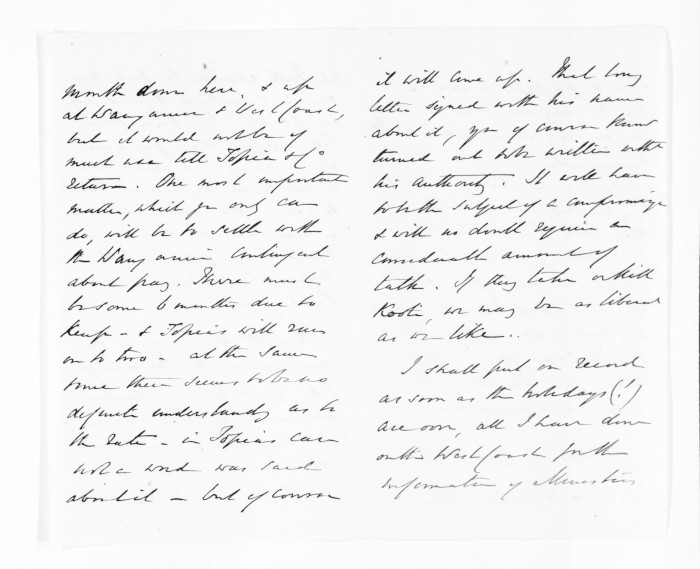 month down here, & up
at Wanganui & West Coast,
but it would not be of
much use till Topia & Co
return. One most important
matter, which you only can
do, will be to settle with
the Wanganui Contingent
about pay. There must
be some 6 months due to
Kemp - & Topia's will run
on to two - at the same
time there seems to be no
definite understanding as to
the rate - in Topia's case
not a word was said
about it - but of course
it will come up. That long
letter signed with his name
about it, you of course know
turned out to be written with
his authority. It will have
to be the subject of a compromise
& will no doubt require a
considerable amount of
talk. If they take or kill
Kooti, we may be as liberal
as we like..
I shall put on record
as soon as the holidays (!)
are over, all I have done
on the West Coast for the
information of Ministers